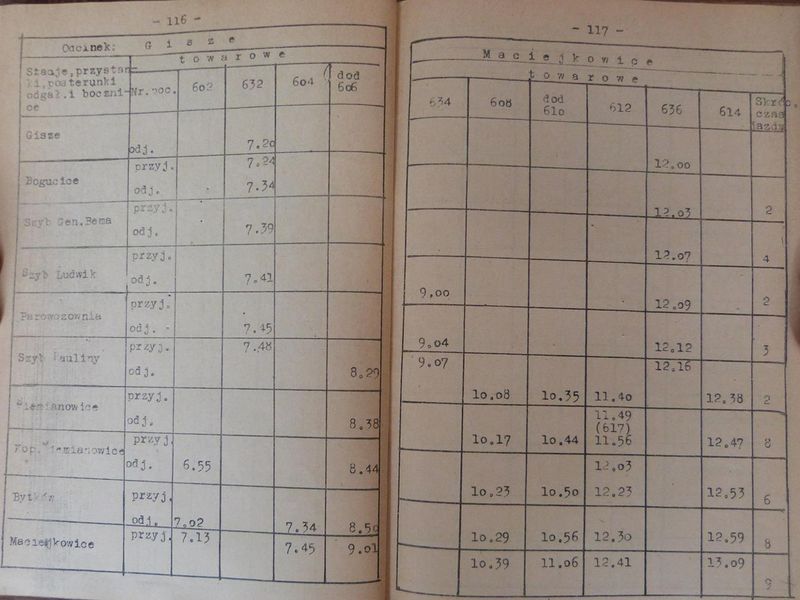 - 116 -
Odcinek: Gisze
towarowe
Stacje, przystan-
ki, posterunki
odgał. i boczni-
ce
Nr. poc.
602
632
604
dod
606
Gisze
odj. 7.20
przyj. 7.24
Bogucice
odj. 7.34
przyj.
Szyb Gen.Bema
odj. 7.39
przyj.
Szyb Ludwik
odj. 7.41
przyj.
Parowozownia
odj. - 7.45
przyj. 7.48
Szyb Pauliny
odj. 8.29
przyj.
Siemianowice
odj. 8.38
przyj.
Kop. Siemianowice
odj. 6.55 8.44
Bytków przyj.
odj. 7.02 7.34 8.50
Maciejkowice przyj. 7.13
7.45 9.01
- 117 -
Maciejkowice
towarowe
634
608
dod
610
612
636
614
Skróc.
czas
jazdy
12.00
12.03 2
12.07 4
9.00
12.09 2
9.04 12.12 3
9.07 12.16
10.08 10.35 11.40 12.38 2
11.49
(617)
10.17 10.44 11.56 12.47 8
12.03
10.23 10.50 12.23 12.53 6
10.29 10.56 12.30 12.59 8
10.39 11.06 12.41 13.09
9